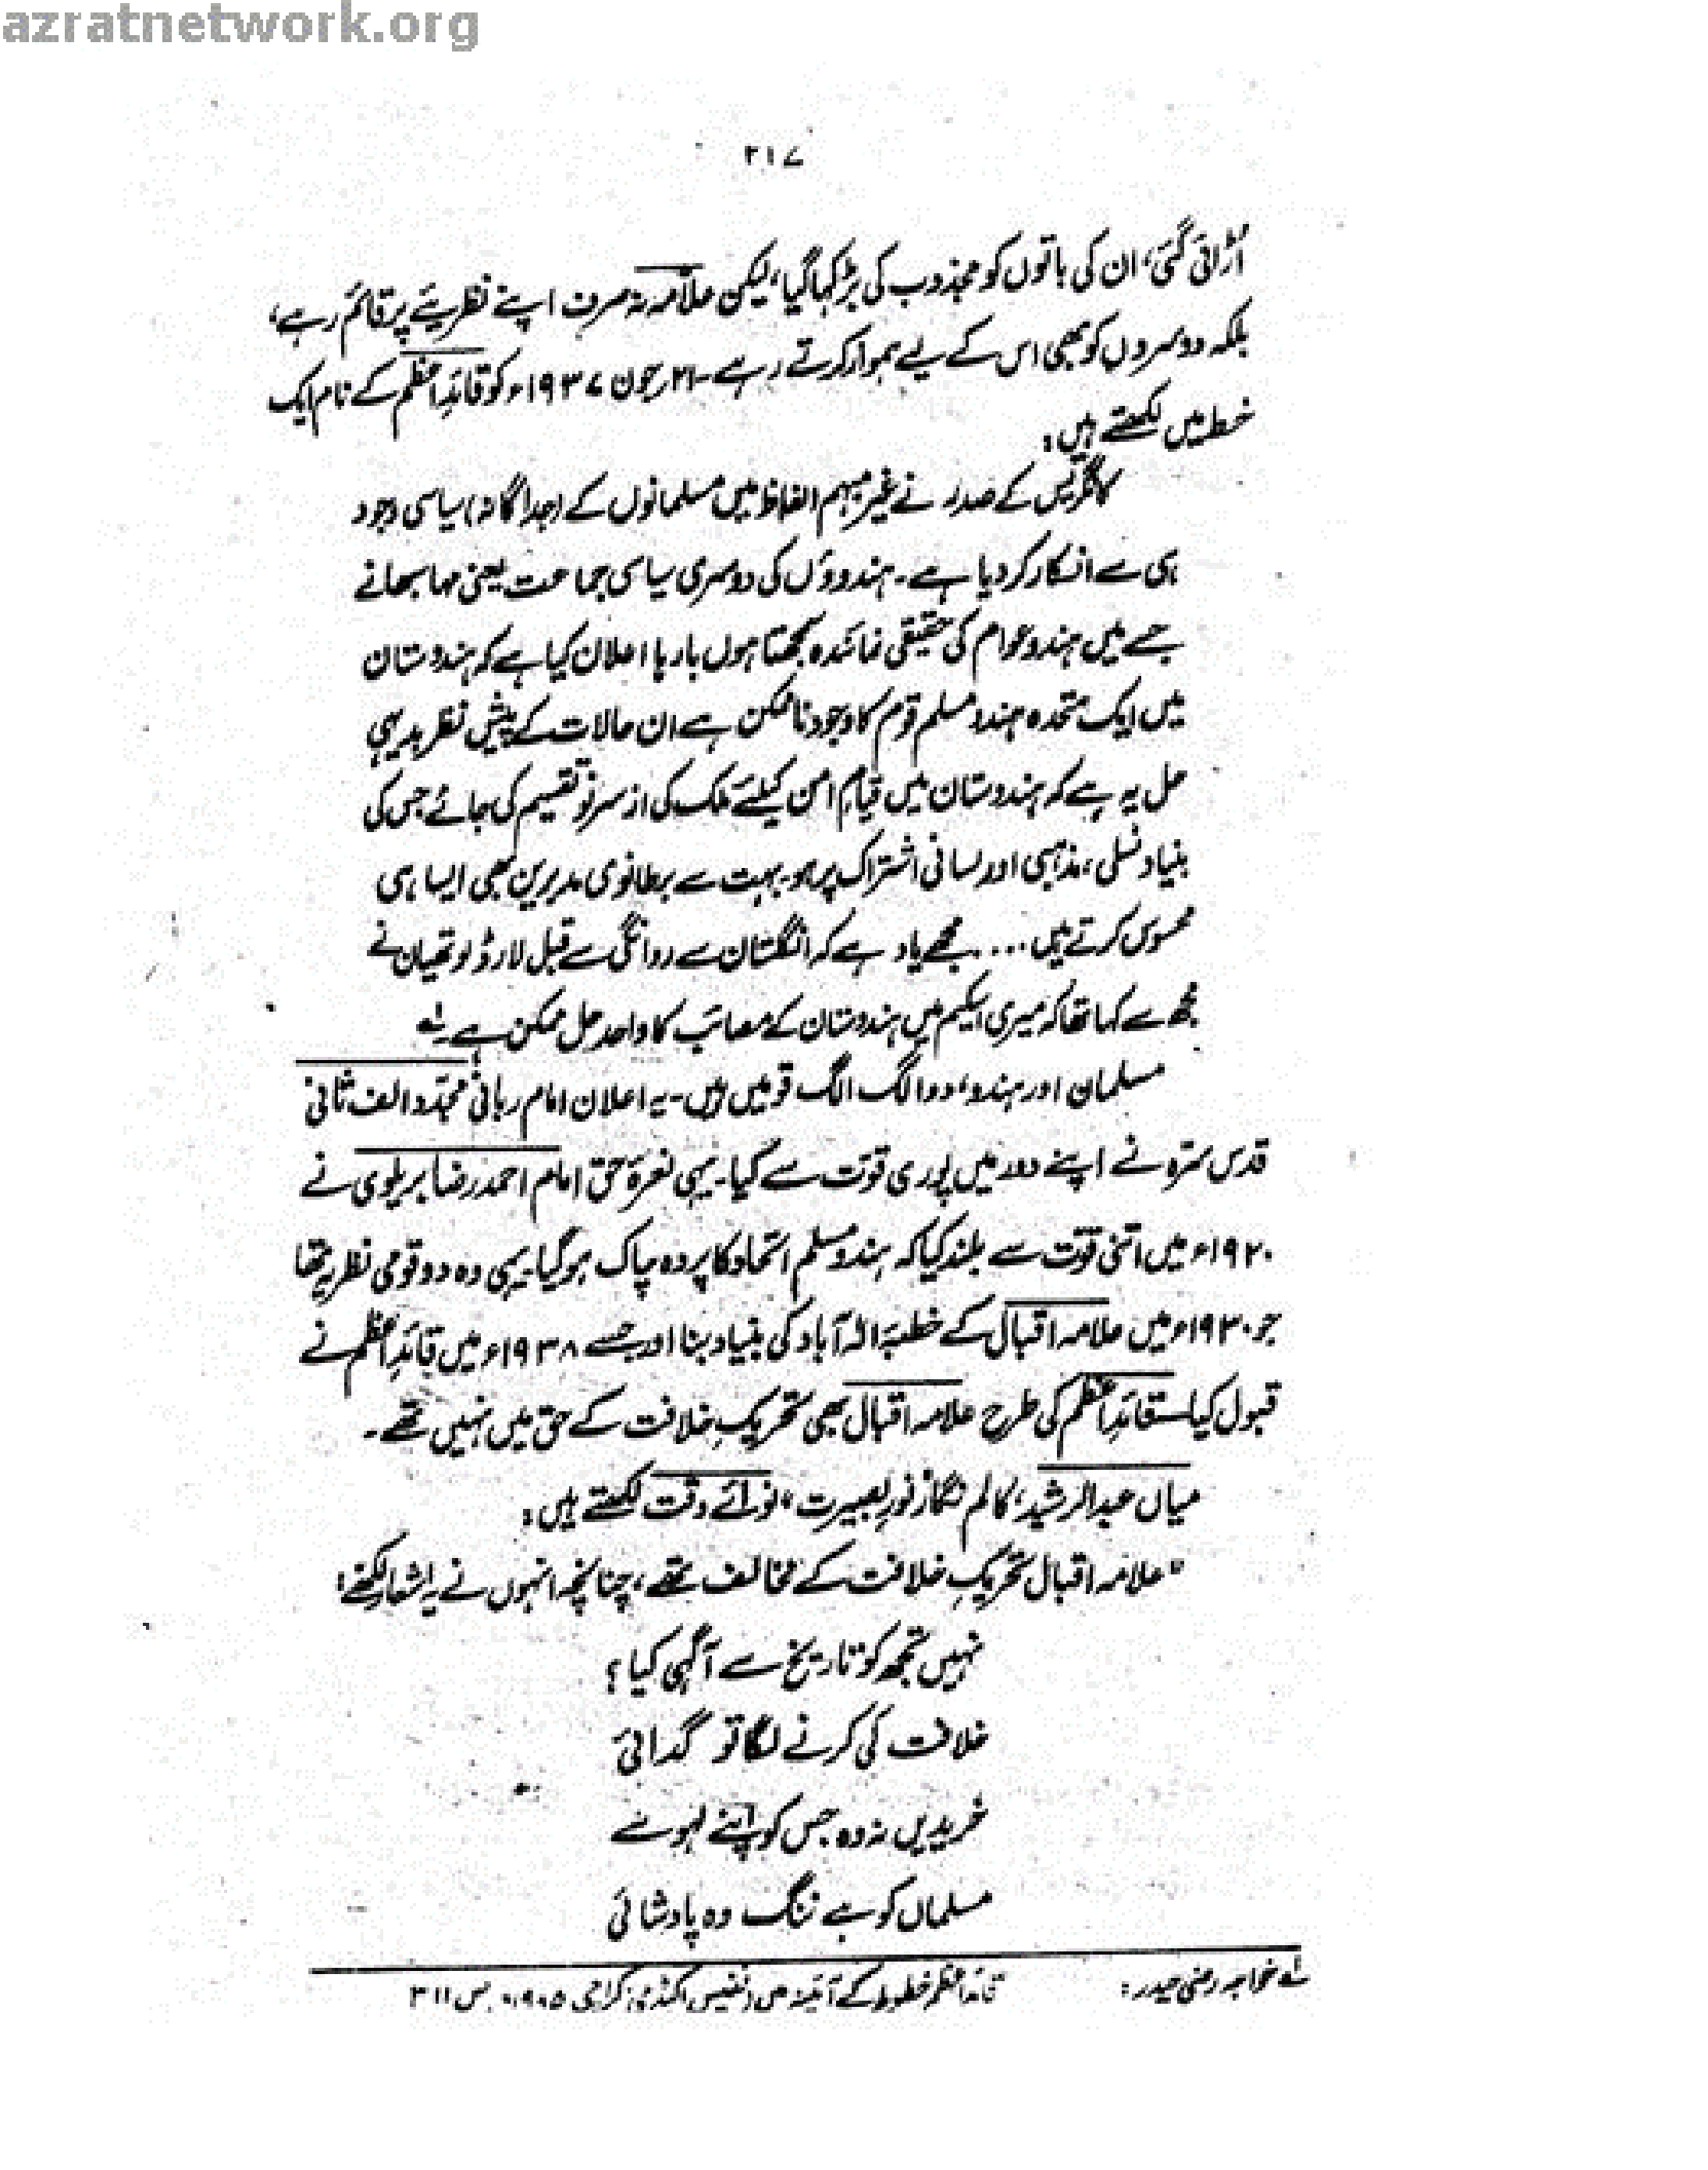 azratnetwork.org
۲۱۷
اڑائی گئی، ان کی باتوں کو مجذوب کی بڑ کہا گیا، لیکن علامہ نہ صرف اپنے نظریئے پر قائم رہے،
بلکہ دوسروں کو بھی اس کے لیے ہموار کرتے رہے۔ ۲۱ رجون ۱۹۳۷ء کو قائدِ اعظم کے نام ایک
خط میں لکھتے ہیں:
کانگریس کے صدر نے غیر مبہم الفاظ میں مسلمانوں کے (جداگانہ) سیاسی وجود
ہی سے انکار کر دیا ہے۔ ہندوؤں کی دوسری سیاسی جماعت یعنی مہاسبھا نے
جسے میں ہندو عوام کی حقیقی نمائندہ سمجھتا ہوں بارہا اعلان کیا ہے کہ ہندوستان
میں ایک متحدہ ہندو مسلم قوم کا وجود ناممکن ہے ان حالات کے پیشِ نظر بدیہی
حل یہ ہے کہ ہندوستان میں قیامِ امن کیلئے ملک کی از سرِ نو تقسیم کی جائے جس کی
بنیاد نسلی، مذہبی اور لسانی اشتراک پر ہو۔ بہت سے برطانوی مدبرین بھی ایسا ہی
محسوس کرتے ہیں.... مجھے یاد ہے کہ انگلستان سے روانگی سے قبل لارڈ لوتھیان نے
مجھ سے کہا تھا کہ میری اسکیم میں ہندوستان کے مصائب کا واحد حل ممکن ہے۔ لہ
مسلمان اور ہندو، دو الگ الگ قومیں ہیں۔ یہ اعلان امام ربانی مجدّد الف ثانی
قدس سرّہ نے اپنے دور میں پوری قوّت سے کیا۔ یہی نعرۂ حق امام احمد رضا بریلوی نے
۱۹۲۰ء میں اتنی قوّت سے بلند کیا کہ ہندو مسلم اتحاد کا پردہ چاک ہو گیا۔ یہی وہ دو قومی نظریہ تھا
جو ۱۹۳۰ء میں علامہ اقبال کے خطبۂ الہ آباد کی بنیاد بنا اور جسے ۱۹۳۸ء میں قائدِ اعظم نے
قبول کیا۔ قائدِ اعظم کی طرح علامہ اقبال بھی تحریکِ خلافت کے حق میں نہیں تھے۔
میاں عبدالرشید، کالم نگار نورِ بصیرت، نوائے وقت لکھتے ہیں:
"علامہ اقبال تحریکِ خلافت کے مخالف تھے، چنانچہ انہوں نے یہ اشعار لکھے:
نہیں تجھ کو تاریخ سے آگہی کیا؟
خلافت کی کرنے لگا تو گدائی
خریدیں نہ وہ جس کو اپنے لہو سے
مسلماں کو ہے ننگ وہ پادشائی
لہ خواجہ رضی حیدر: قائدِ اعظم خطوط کے آئینہ میں (نفیس اکیڈمی، کراچی ۱۹۸۵ء) ص ۳۱۱